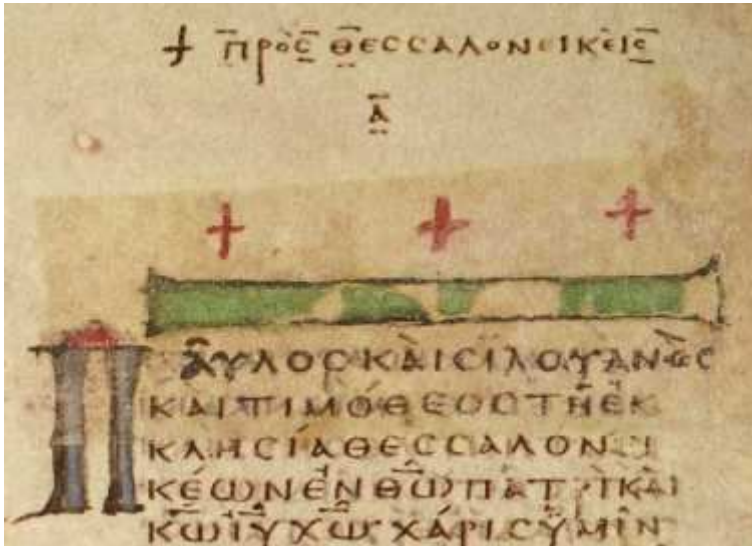 + πρὸς θεσσαλονεικεὶς
α
Παυλος και σιλουανος
και τιμόθεος τῆ ἐκ
κλησία θεσσαλονι
κέων ἐν θω πατρὶ και
κω ιυ χω χάρις ὑμῖν